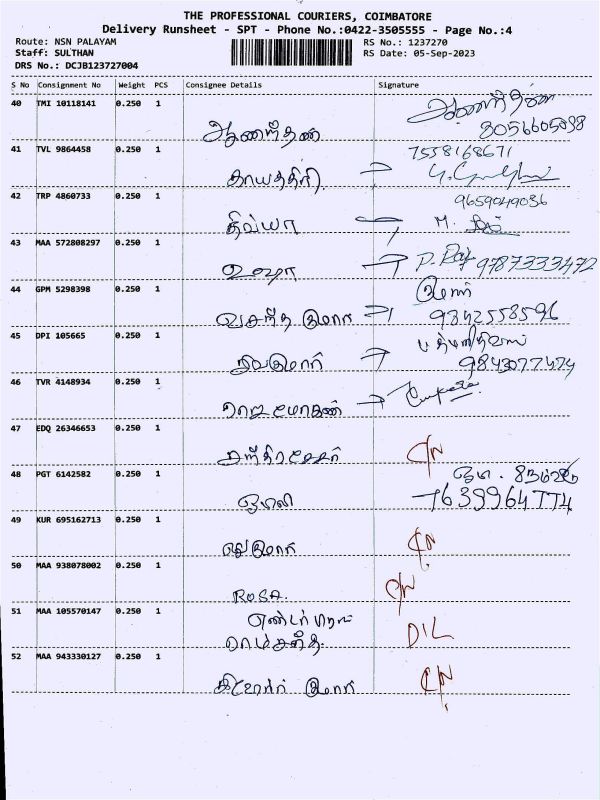 THE PROFESSIONAL COURIERS, COIMBATORE
Delivery Runsheet - SPT - Phone No.:0422-3505555 - Page No.:4
Route: NSN PALAYAM
Staff: SULTHAN
DRS No.: DCJB123727004
RS No.: 1237270
RS Date: 05-Sep-2023
S No Consignment No Weight PCS Consignee Details Signature
40 TMI 10118141 0.250 1
ஆனந்தன்
8056605898
41 TVL 9864458 0.250 1 7538168671
காயத்திரி →
42 TRP 4860733 0.250 1 9659049036
திவ்யா → M.
43 MAA 572808297 0.250 1
உஷா → P. Raj 9787333472
44 GPM 5298398 0.250 1
வசந்த குமார் → 9842558596
45 DPI 105665 0.250 1
சிவகுமார் → 9843077474
46 TVR 4148934 0.250 1
ராஜ மோகன் →
47 EDQ 26346653 0.250 1
சந்திரசேகர் C/N
48 PGT 6142582 0.250 1
7639964774
49 KUR 695162713 0.250 1
C/N
50 MAA 938078002 0.250 1
ROSA. C/N
51 MAA 105570147 0.250 1
D/L
52 MAA 943330127 0.250 1
கிஷோர் குமார் C/N